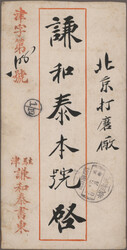 北京打磨廠
謙和泰本號啓
津字第
號
駐津謙和泰書柬